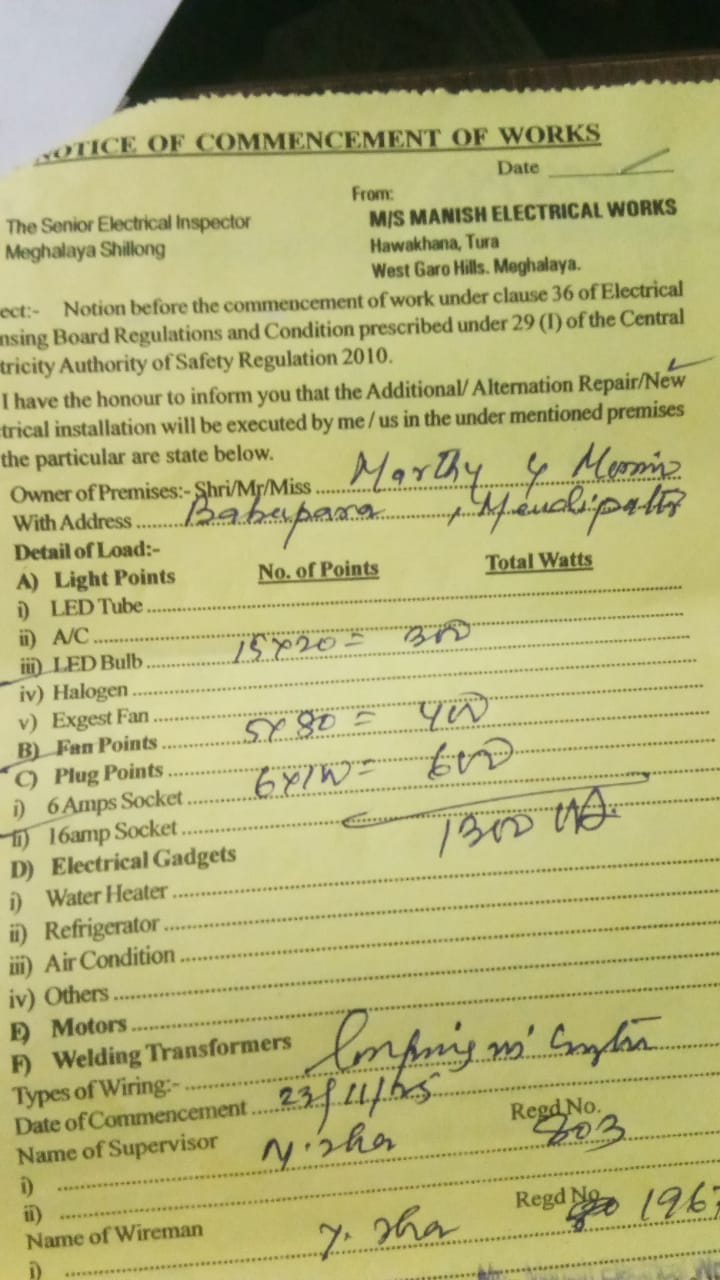 NOTICE OF COMMENCEMENT OF WORKS
Date
From:
The Senior Electrical Inspector
M/S MANISH ELECTRICAL WORKS
Meghalaya Shillong
Hawakhana, Tura
West Garo Hills. Meghalaya.
ect:- Notion before the commencement of work under clause 36 of Electrical
nsing Board Regulations and Condition prescribed under 29 (I) of the Central
tricity Authority of Safety Regulation 2010.
I have the honour to inform you that the Additional/ Alternation Repair/New
trical installation will be executed by me / us in the under mentioned premises
the particular are state below.
Owner of Premises:- Shri/Mr/Miss Marthy
With Address Babupara
Detail of Load:-
A) Light Points No. of Points Total Watts
i) LED Tube
ii) A/C
iii) LED Bulb 15x20 = 300
iv) Halogen
v) Exgest Fan
B) Fan Points 5x80 = 400
C) Plug Points
i) 6 Amps Socket 6x100 = 600
ii) 16amp Socket
1300
D) Electrical Gadgets
i) Water Heater
ii) Refrigerator
iii) Air Condition
iv) Others
E) Motors
F) Welding Transformers
Types of Wiring:-
Date of Commencement 23/11/25
Name of Supervisor Regd No.
i) 803
ii)
Name of Wireman Regd No 196
i)